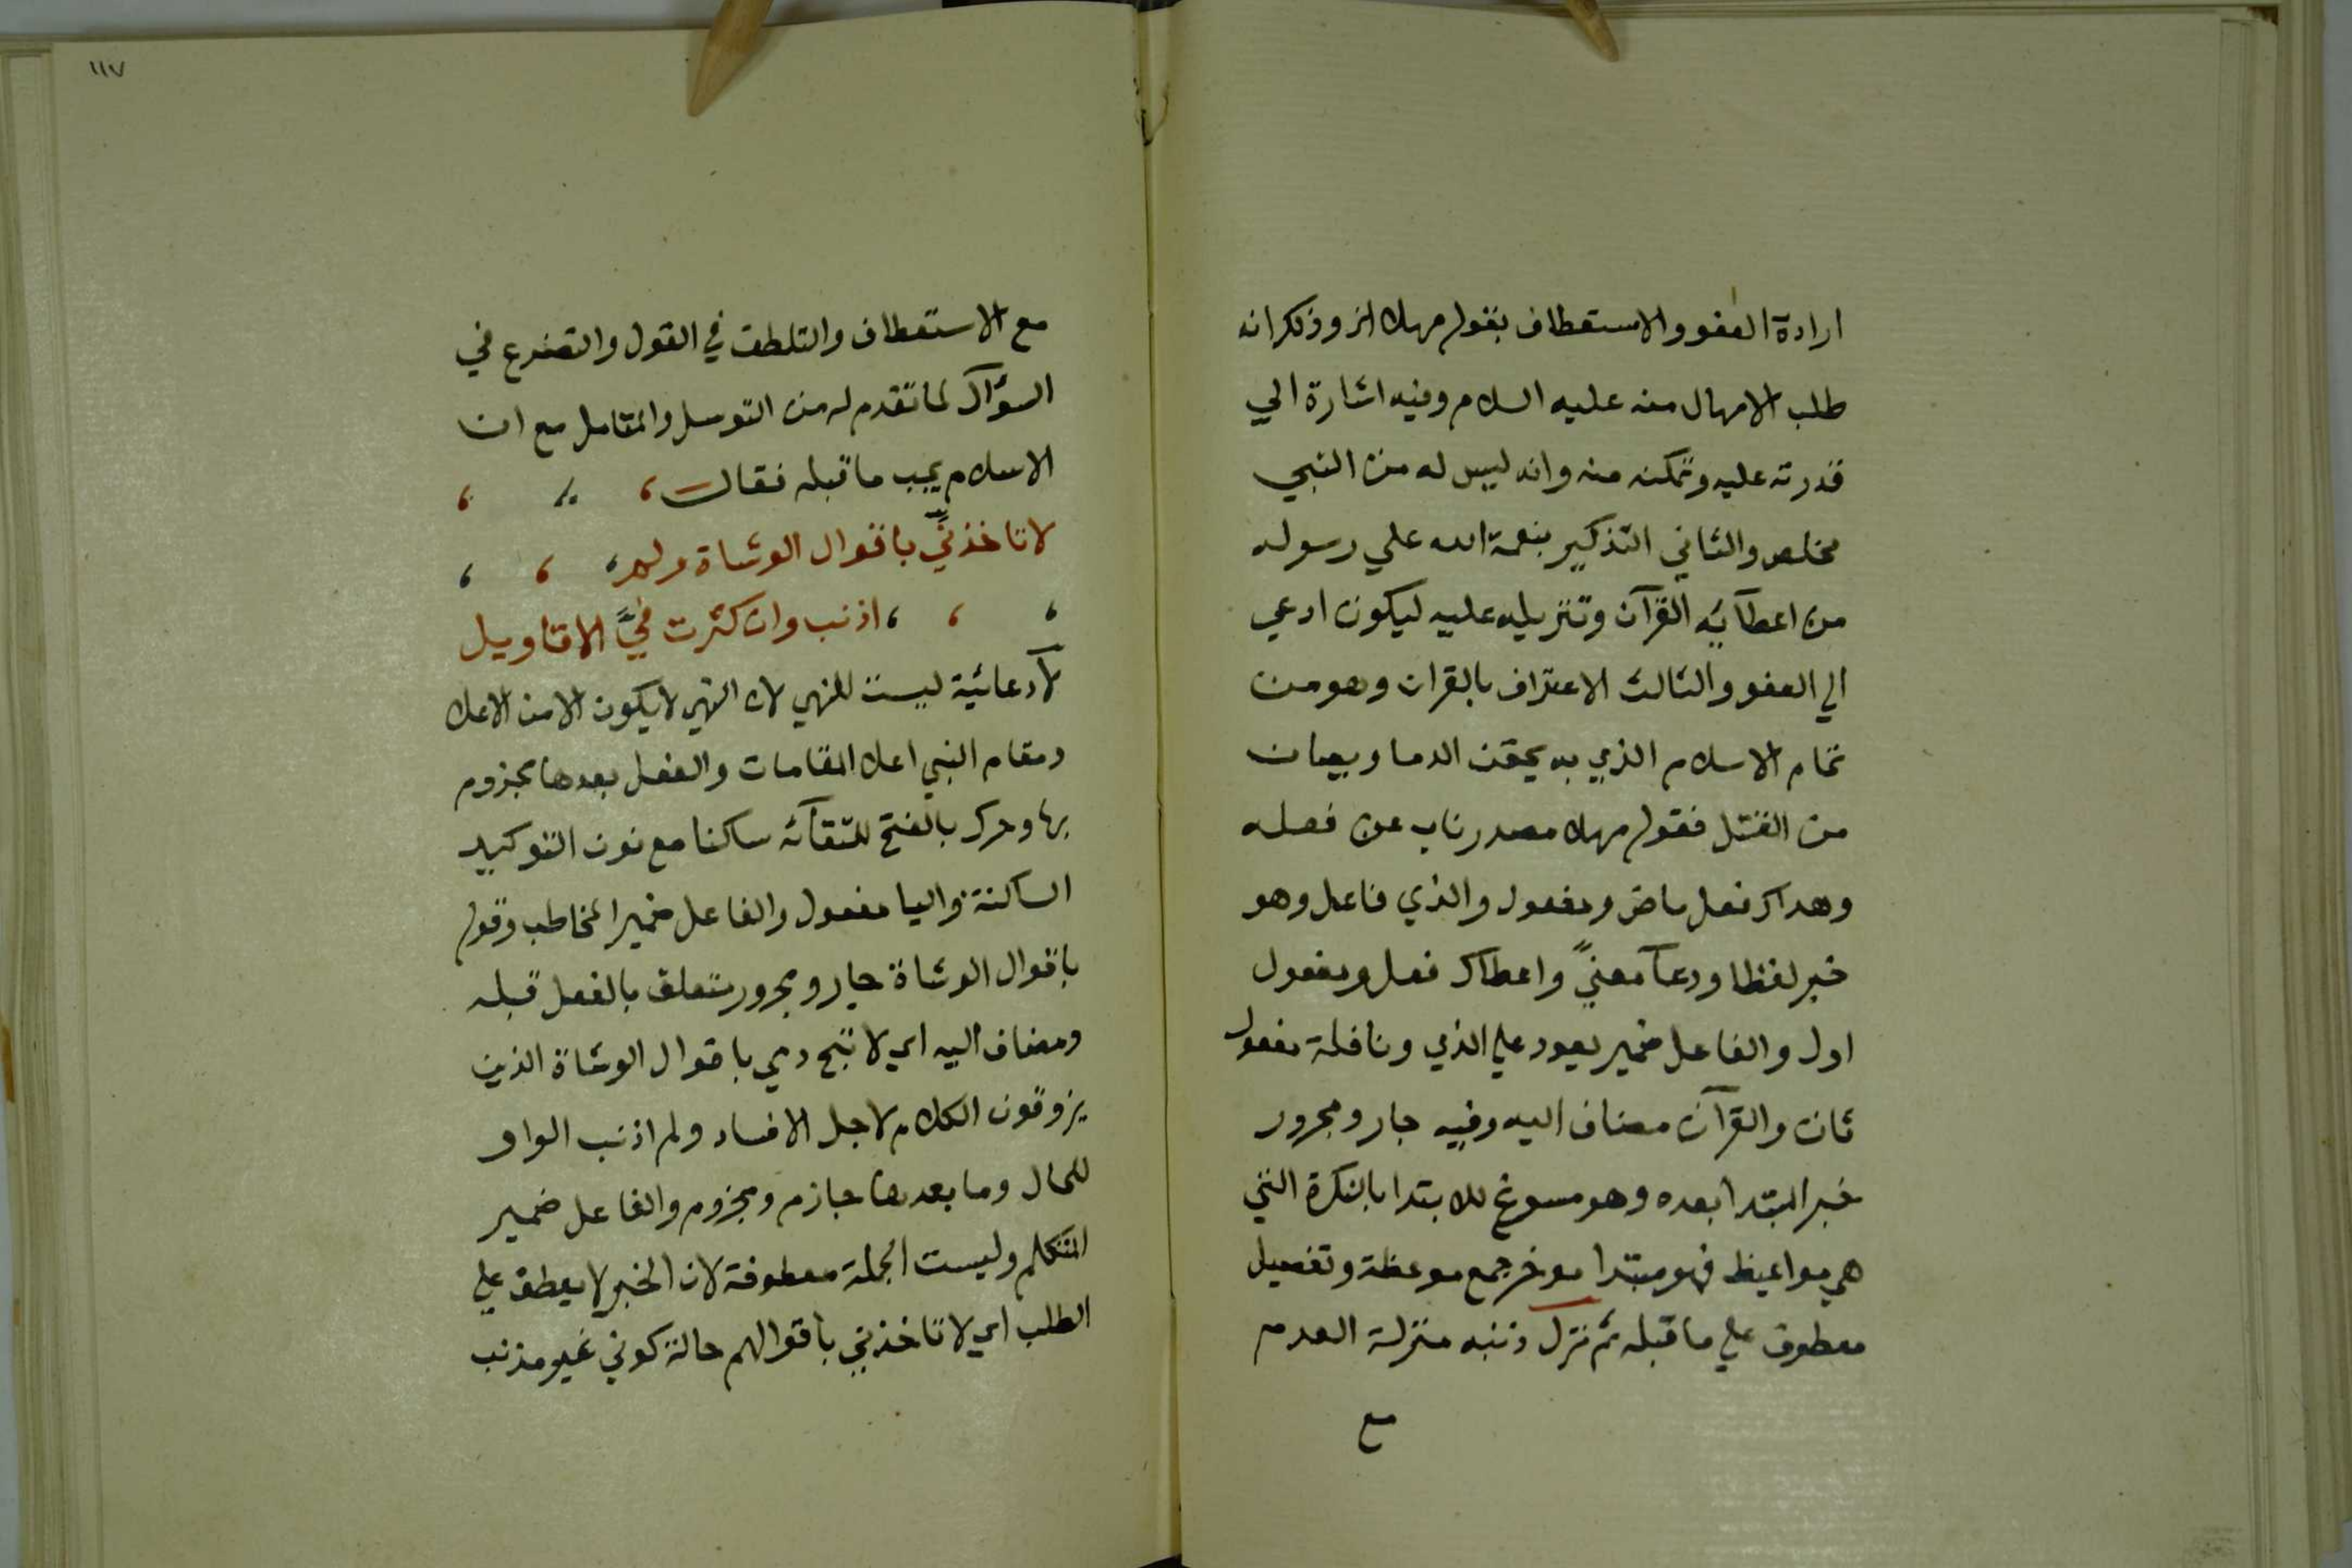 ارادة العفو والاستعطاف بقوله مهلا الخ وذكر انه
طلب الامهال منه عليه السلام وفيه اشارة الي
قدرته عليه وتمكنه منه وانه ليس له من النبي
مخلص والثاني التذكير بنعمة الله علي رسوله
من اعطآئه القرآن وتنزيله عليه ليكون ادعي
الي العفو والثالث الاعتراف بالقران وهو من
تمام الاسلام الذي به يحقن الدما ويصان
من القتل فقوله مهلا مصدر ناب عن فعله
وهداك فعل ماض ومفعول والذي فاعل وهو
خبر لفظا ودعآ معنيً واعطاك فعل ومفعول
اول والفاعل ضمير يعود علي الذي ونافلة مفعول
ثان والقرآن مضاف اليه وفيه جار ومجرور
خبر المبتدا بعده وهو مسوغ للابتدا بالنكرة التي
هي مواعيظ فهو مبتدا موخر جمع موعظة وتفصيل
معطوف علي ما قبله ثم نزل ذنبه منزلة العدم
مع
١١٧
مع الاستعطاف والتلطف في القول والتضرع في
السؤآل لما تقدم له من التوسل والتامل مع ان
الاسلام يجب ما قبله فقال
لا تاخذنّي باقوال الوشاة ولم
اذنب وان كثرت فيَّ الاقاويل
لآ دعائية ليست للنهي لان النهي لا يكون الا من الاعلا
ومقام النبي اعلا المقامات والفعل بعدها مجزوم
بها وحرك بالفتح للتقآئه ساكنا مع نون التوكيد
الساكنة واليا مفعول والفاعل ضمير المخاطب وقوله
باقوال الوشاة جار ومجرور متعلق بالفعل قبله
ومضاف اليه اي لا تبح دمي باقوال الوشاة الذين
يزوقون الكلام لاجل الافساد ولم اذنب الواو
للحال وما بعدها جازم ومجزوم والفاعل ضمير
المتكلم وليست الجملة معطوفة لان الخبر لا يعطف علي
الطلب اي لا تاخذني باقوالهم حالة كوني غير مذنب